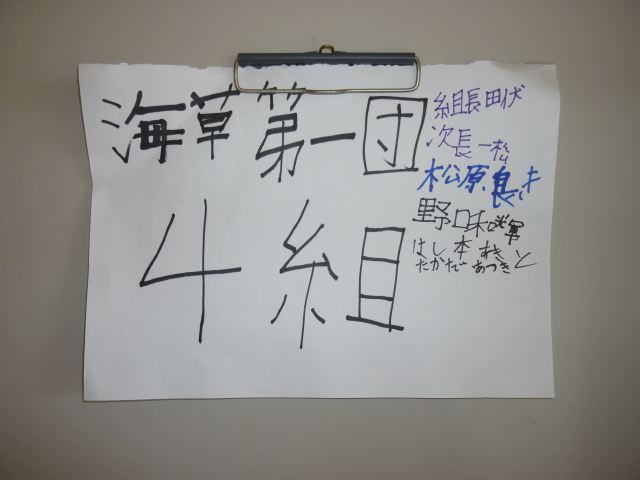 海草第一団
4組
組長 田伏
次長 一松
松原良
野口
はし本 まさと
たかだ あつき